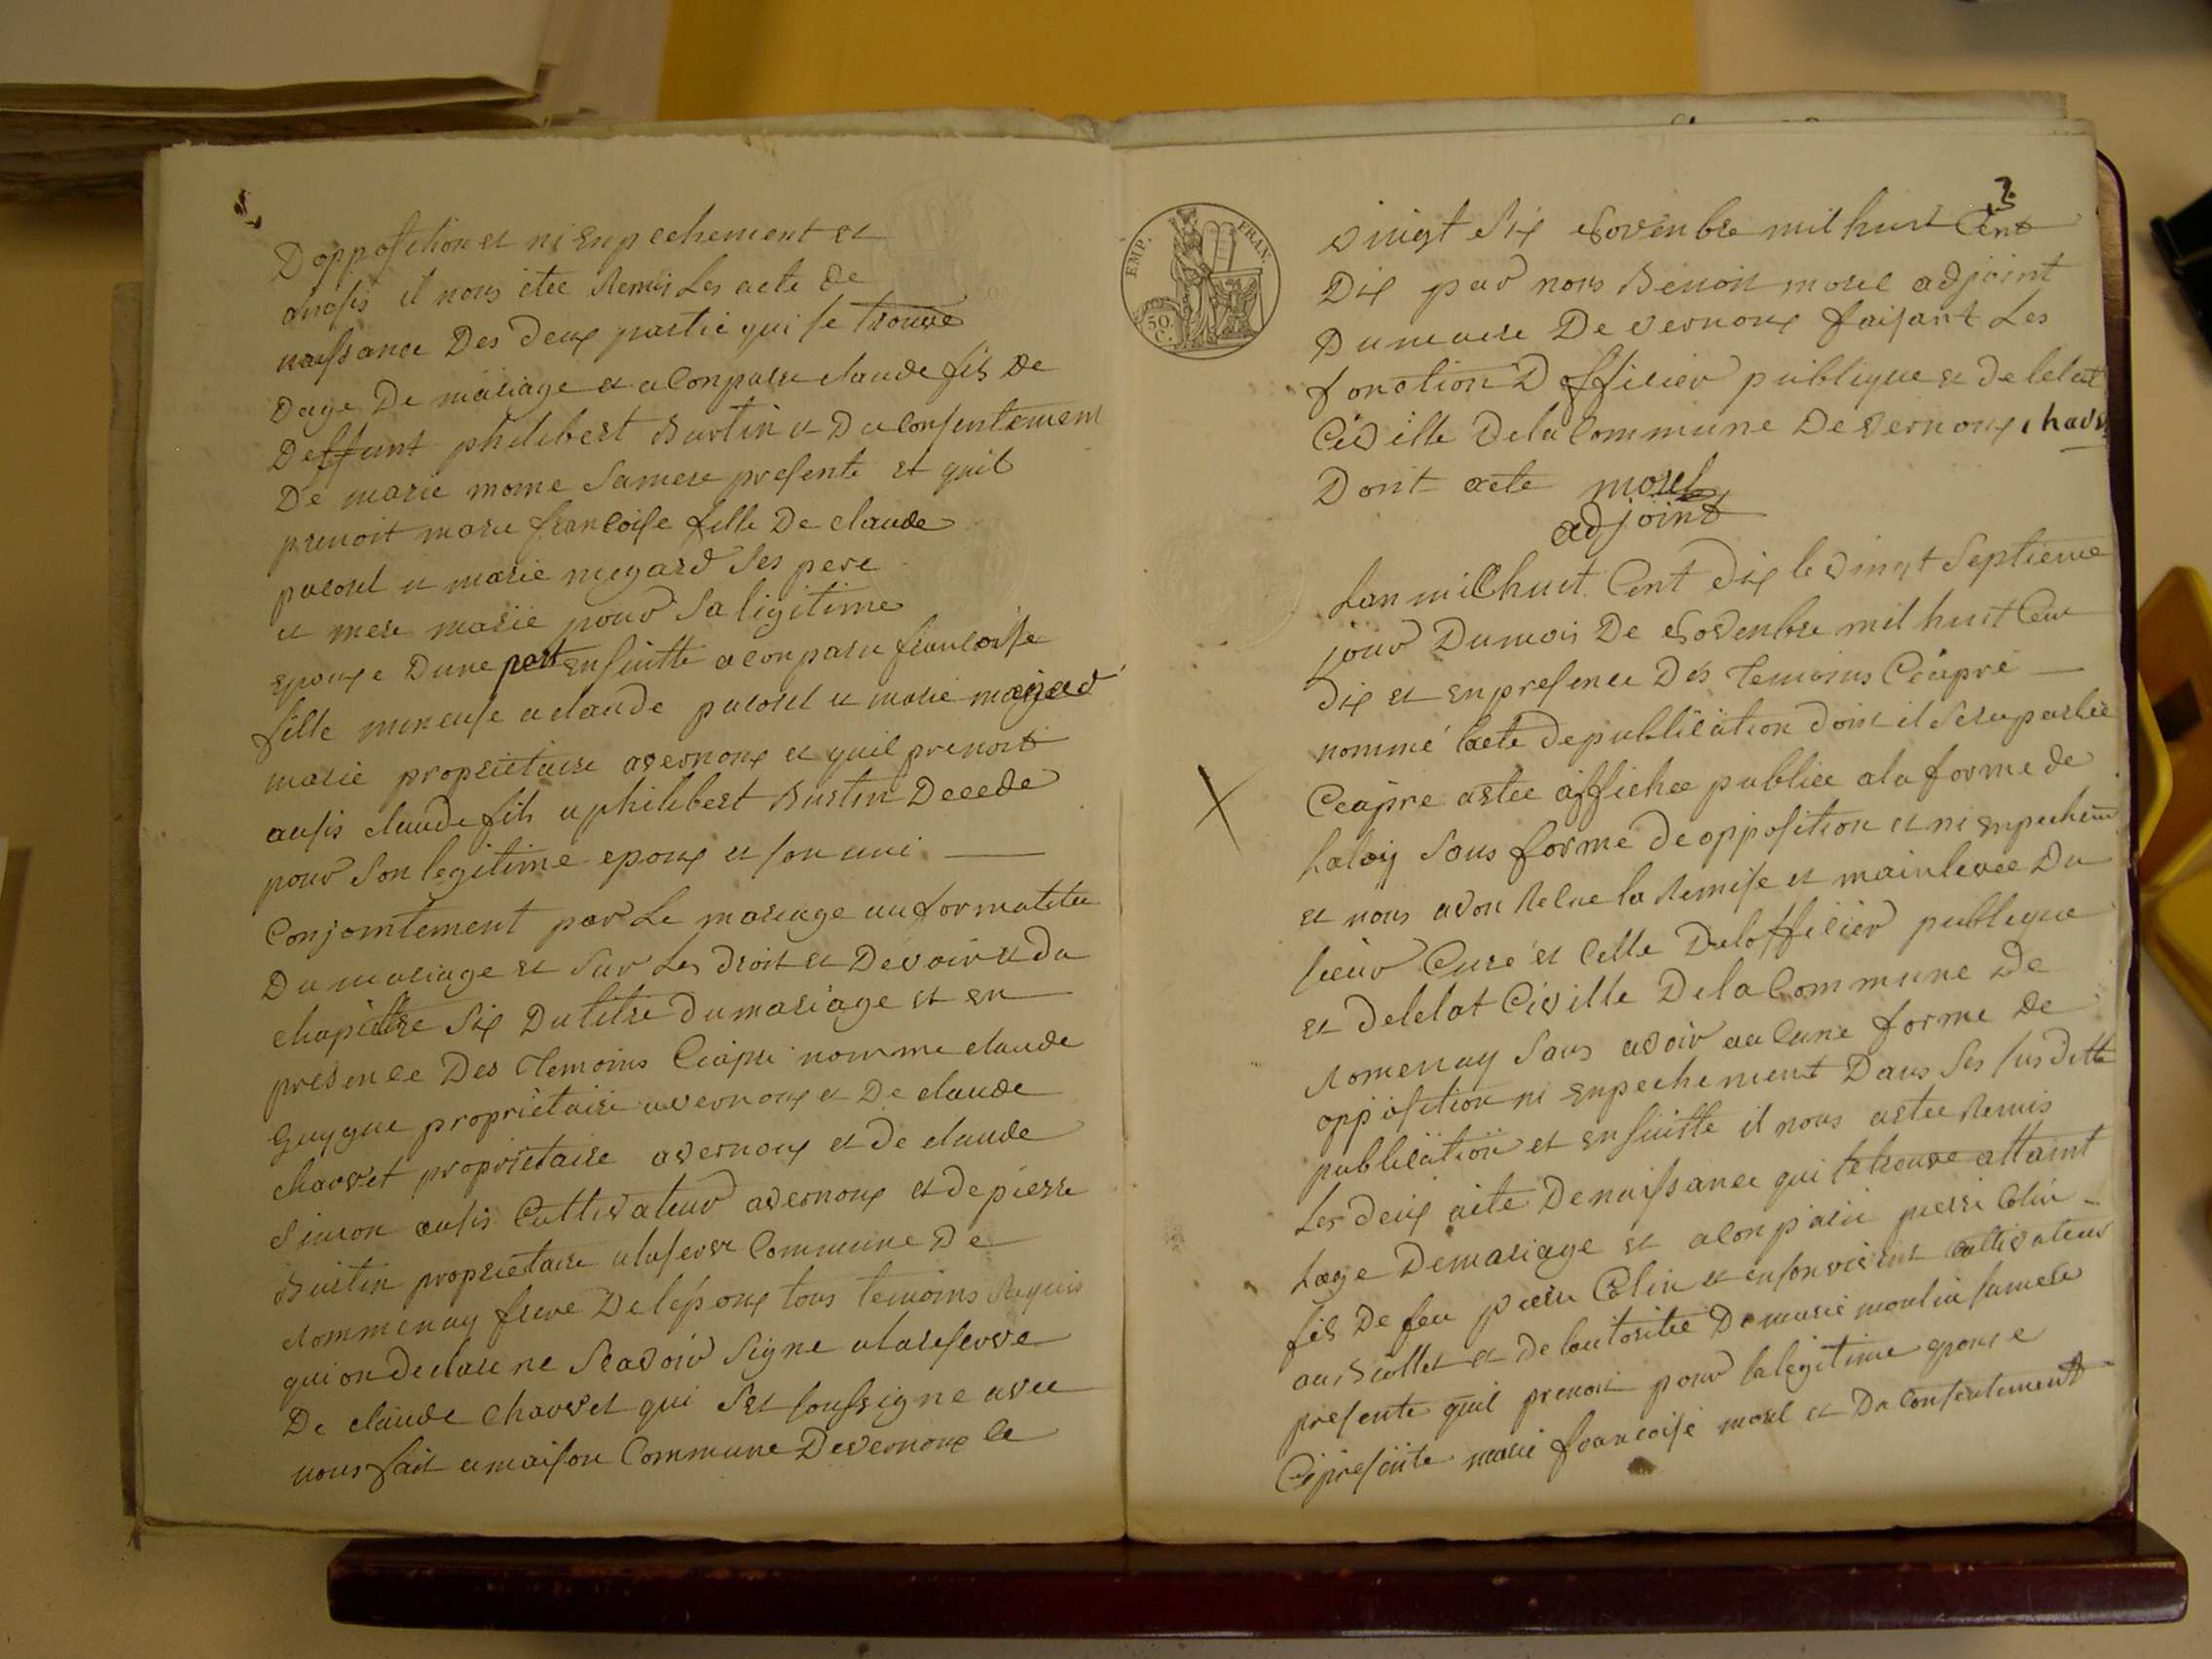 Dopposition et ni enpechement et
ausis il nous etee Remis Les acte de
naissance Des deux partie qui se trouve
Dage De mariage et a Conparu claude fils De
Deffunt philibert Burtin et Du Consentement
De marie mome Samere presente et quil
prenoit marie francoise fille De claude
pacoud et marie megard Ses pere
et mere marie pour Sa ligitime
epouxe Dune part ensuitte a conparu francoisse
fille mineuse a claude pacoud et marie magard
marie proprietaire a vernoux et quil prenoit
ausis claude fils a philibert Burtin Decede
pour Son legitime epoux et son uni
Conjointement par Le mariage
Du mariage et Sur Les droit et Devoir et du
chapittre Six Du titre Du mariage et en
presence Des Temoins Ciapre nomme claude
Guygue proprietaire a vernoux et De claude
chavvet proprietaire a vernoux et de claude
Simon ausis Cultivateur a vernoux et de pierre
Burtin proprietaire Commune De
Rommenay frere De lépoux tous temoins Requis
qui on declare ne Scavoir Signe a la reserve
De claude chavvet qui Set soussigne avec
nous fait a maison Commune De vernoux le
3
EMP. FRAN.
50 C.
vingt Six Novenbre mil huit Cent
Dix par nous Benoit morel adjoint
Du maire De vernoux faisant Les
fonction D officier publique et de letat
Civille De la Commune De vernoux chavv
Dont acte morel
adjoint
Lan mil huit Cent Dix le vingt Septieme
jour Du mois De Novenbre mil huit Cen
dix et en presence Des Temoins Ciapre
nommé lacte de publication doint il Sera parlée
Ceapre astee affichee publiee a la forme de
La loy Sous forme de opposition et ni enpechem
et nous avon Relue la Remise et mainlevee Du
sieur Curé et Celle De lofficier publique
et de letat Civille De la Commune De
Romenay Sans avoir aucune forme De
opposition ni enpechement Dans Ses susditte
publication et ensuitte il nous astee Remis
Les deux acte De naissance qui se trouve attaint
Lage De mariage et a Conparu pierre Colin
fils De feu pierre Colin et en son vivent Cultivateur
au et de lautoritee De marie moulin samere
presente quil prenoit pour la legitime epouse
Cipresente marie francoise morel et Du Consentement